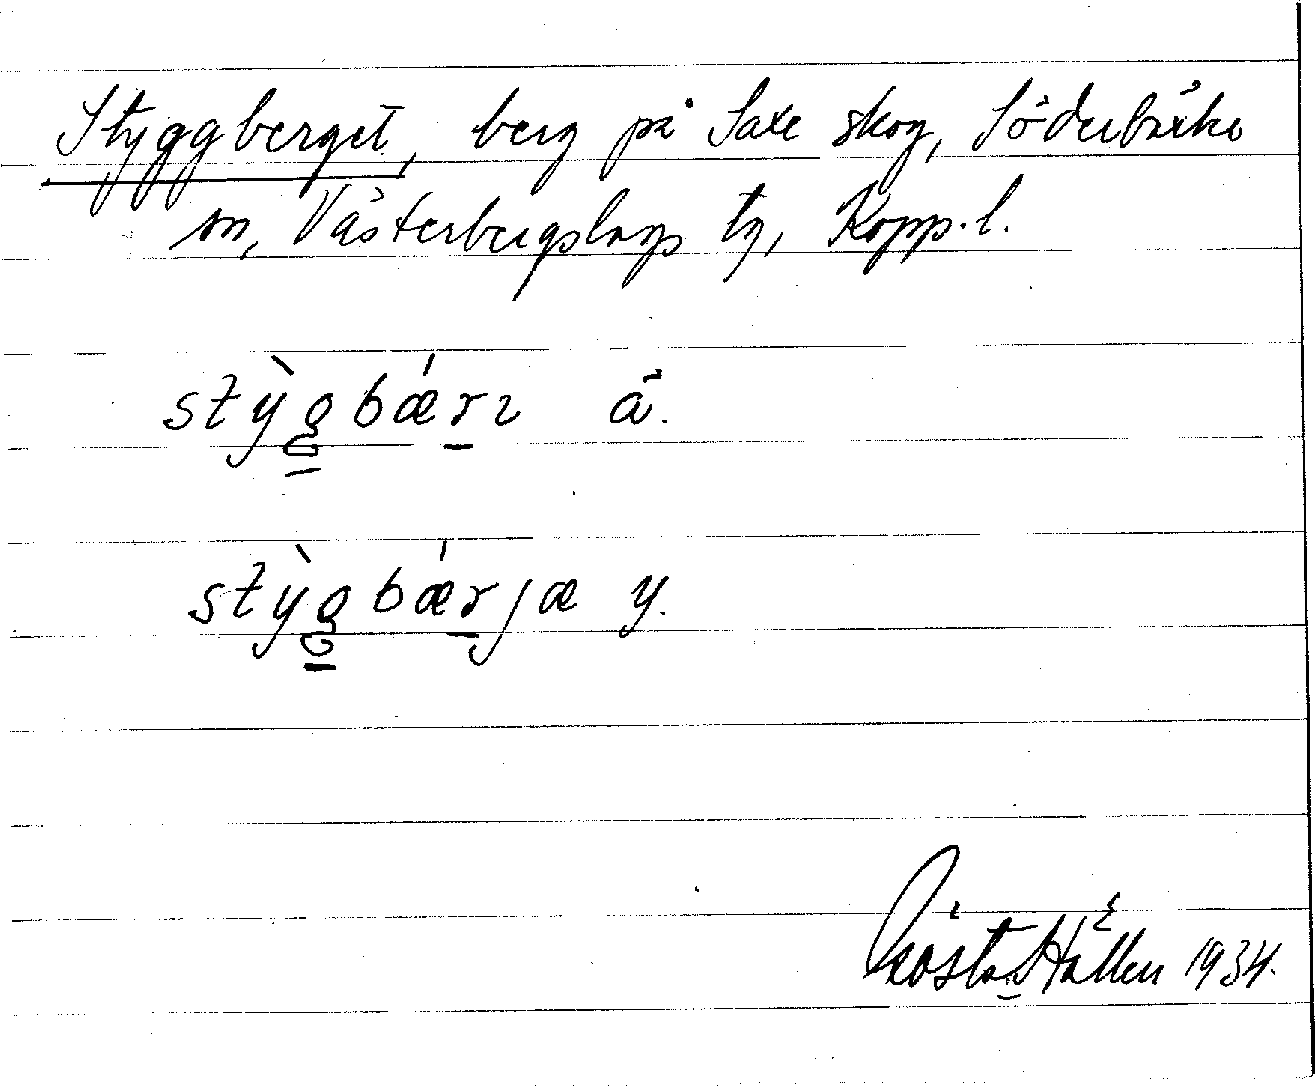 Styggberget, berg på Saxe skog, Söderbärke
sn, Västerbergslags tg, Kopp.l.
stỳgbǽrɩ ä.
stỳgbǽrjæ y.
Gösta Hállen 1934.